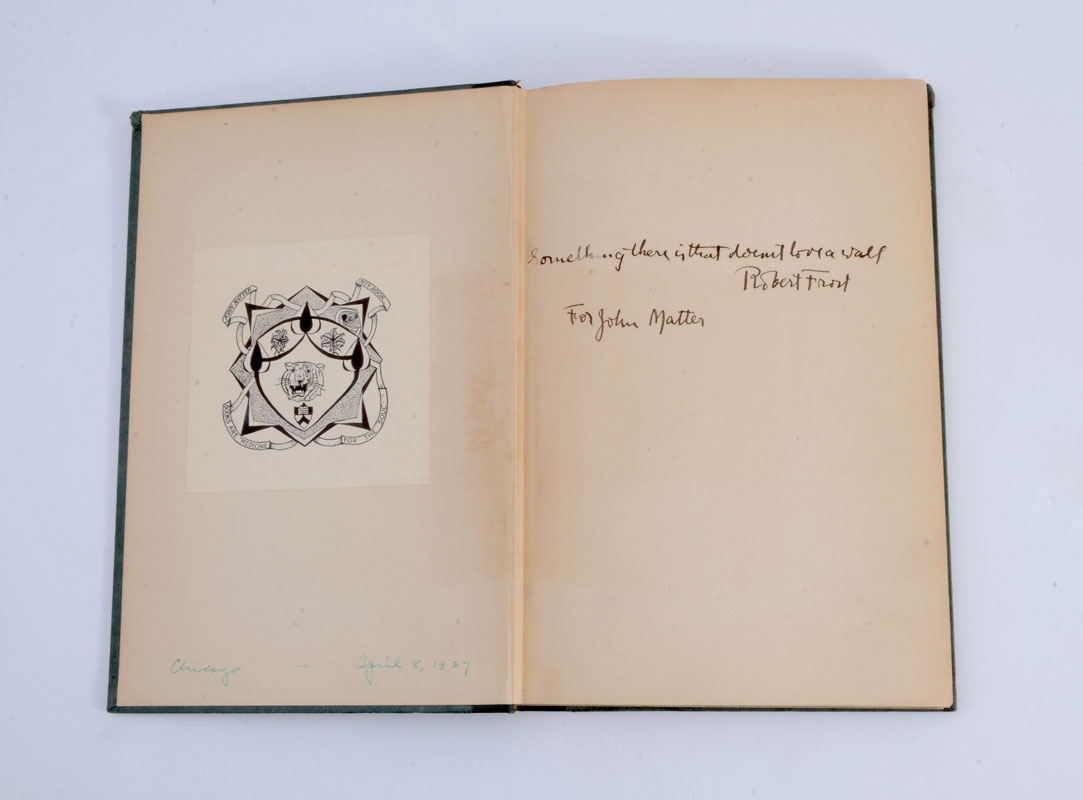 MY BOOK
BOOKS ARE MEDICINE FOR THE SOUL
Chicago — April 8, 1927
Something there is that doesn't love a wall
Robert Frost
For John Matter